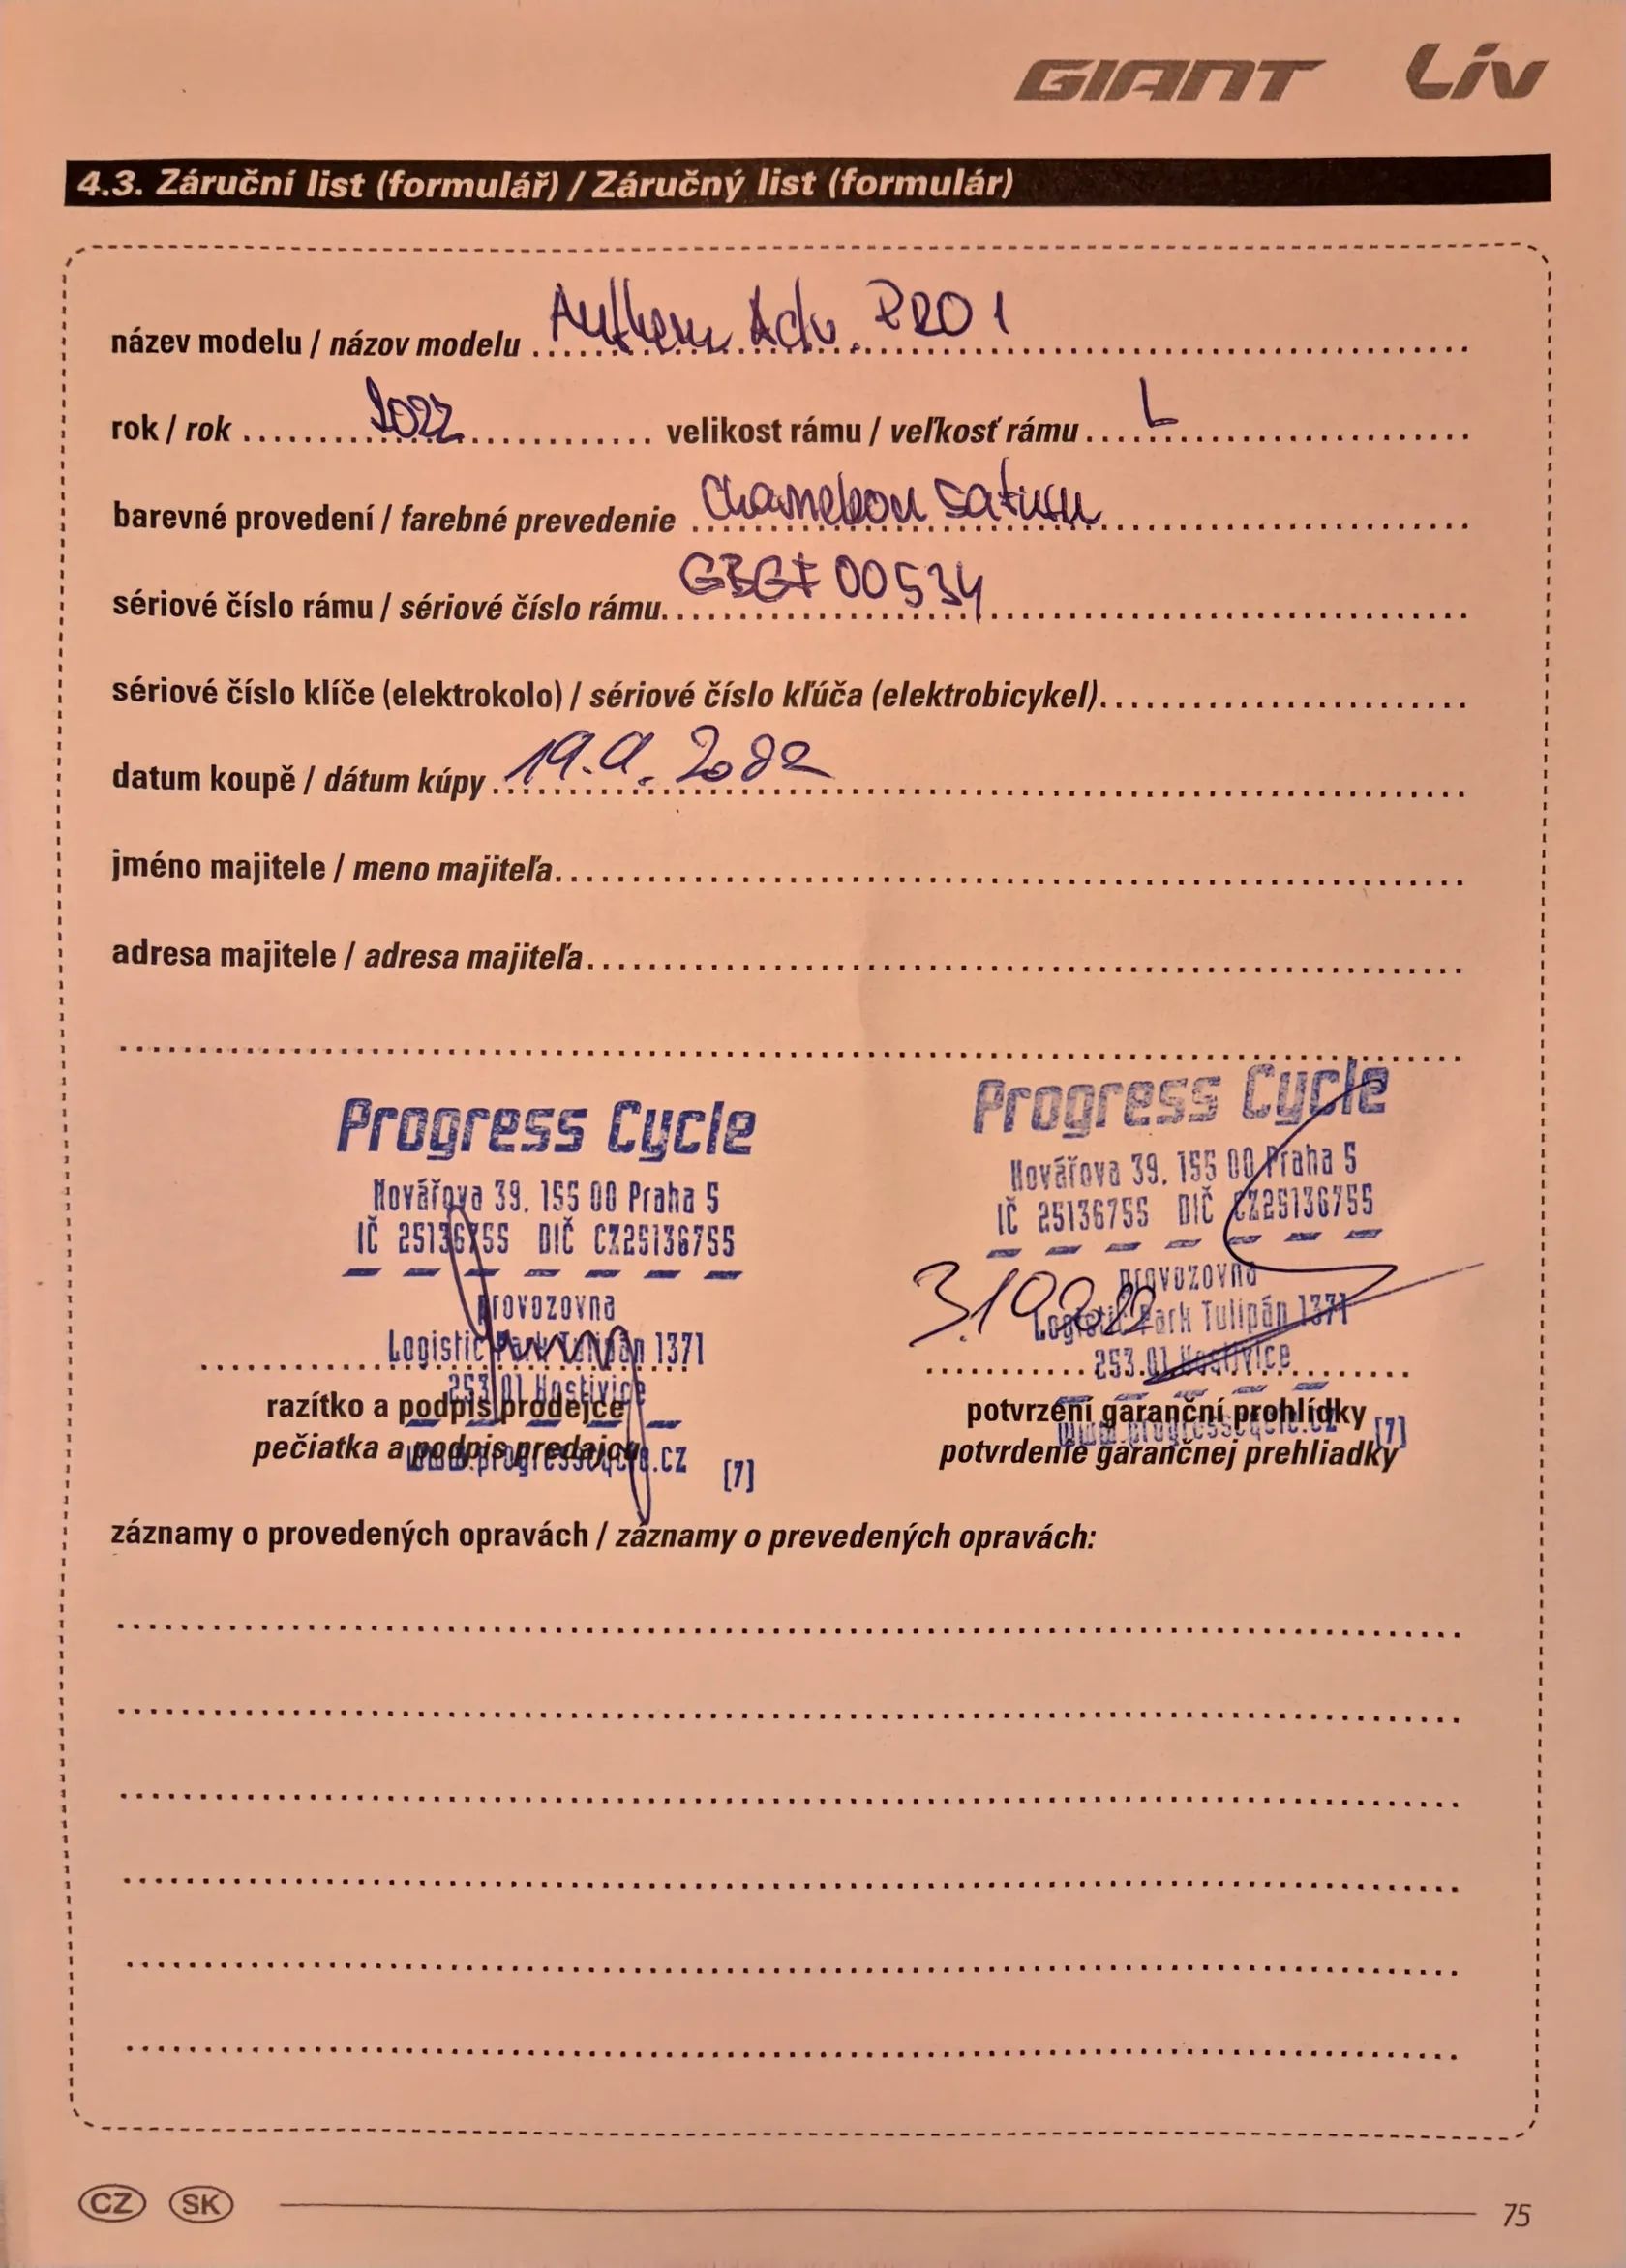 GIANT Liv
4.3. Záruční list (formulář) / Záručný list (formulár)
název modelu / názov modelu Anthem Adv. PRO 1
rok / rok 2022 velikost rámu / veľkosť rámu L
barevné provedení / farebné prevedenie Chameleon Saturn
sériové číslo rámu / sériové číslo rámu
sériové číslo klíče (elektrokolo) / sériové číslo kľúča (elektrobicykel)
datum koupě / dátum kúpy 19.9.2022
jméno majitele / meno majiteľa
adresa majitele / adresa majiteľa
Progress Cycle
Kovářova 39, 155 00 Praha 5
IČ 25136755 DIČ CZ25136755
provozovna
Logistic Park Tulipán 1371
253 01 Hostivice
razítko a podpis prodejce
pečiatka a podpis predajcu
www.progresscycle.cz [7]
Progress Cycle
Kovářova 39, 155 00 Praha 5
IČ 25136755 DIČ CZ25136755
provozovna
Logistic Park Tulipán 1371
253 01 Hostivice
potvrzení garanční prohlídky
www.progresscycle.cz [7]
potvrdenie garančnej prehliadky
záznamy o provedených opravách / záznamy o prevedených opravách:
CZ SK 75